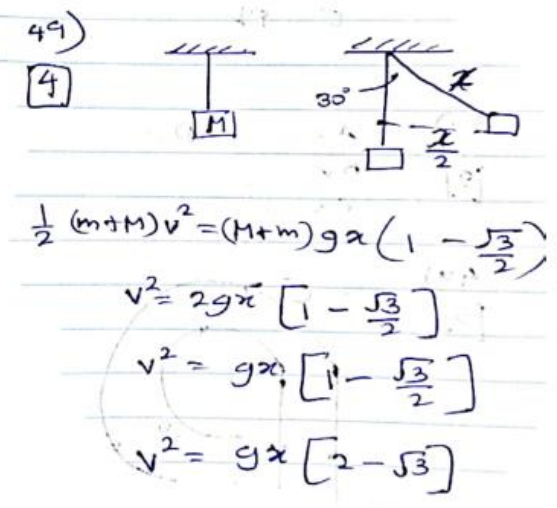 49)
4
M
30°
x
x/2
1/2 (m+M)v² = (M+m)gx(1 - √3/2)
v² = 2gx [1 - √3/2]
v² = gx [1 - √3/2]
v² = gx [2 - √3]